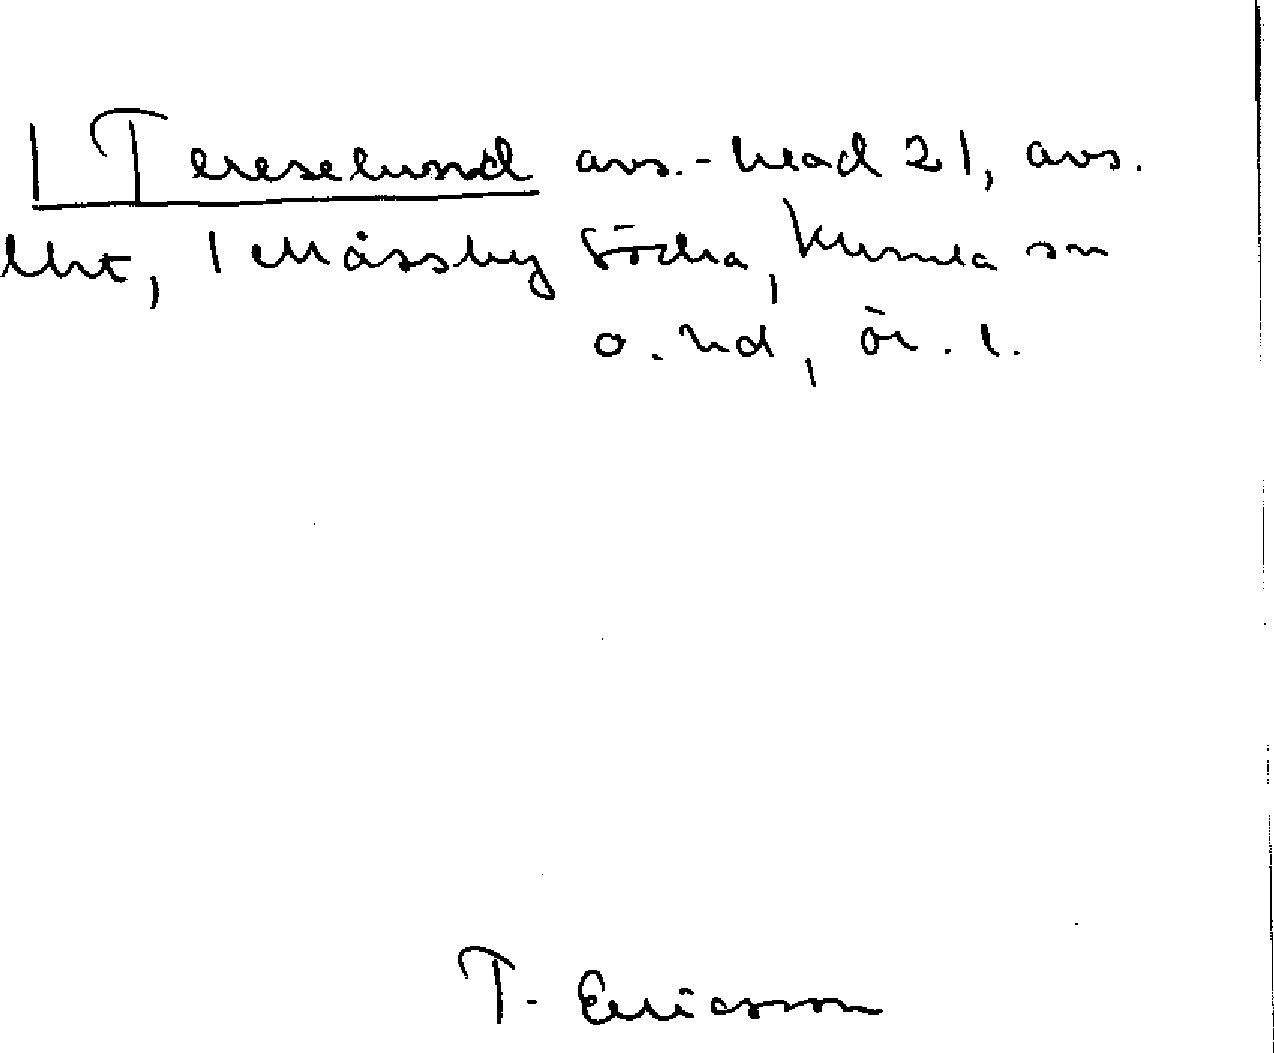 Tereselund avs.-blad 21, avs.
lht, 1 Mossby Södra, Kumla sn
o. hd, ör. l.
T. Ericsson